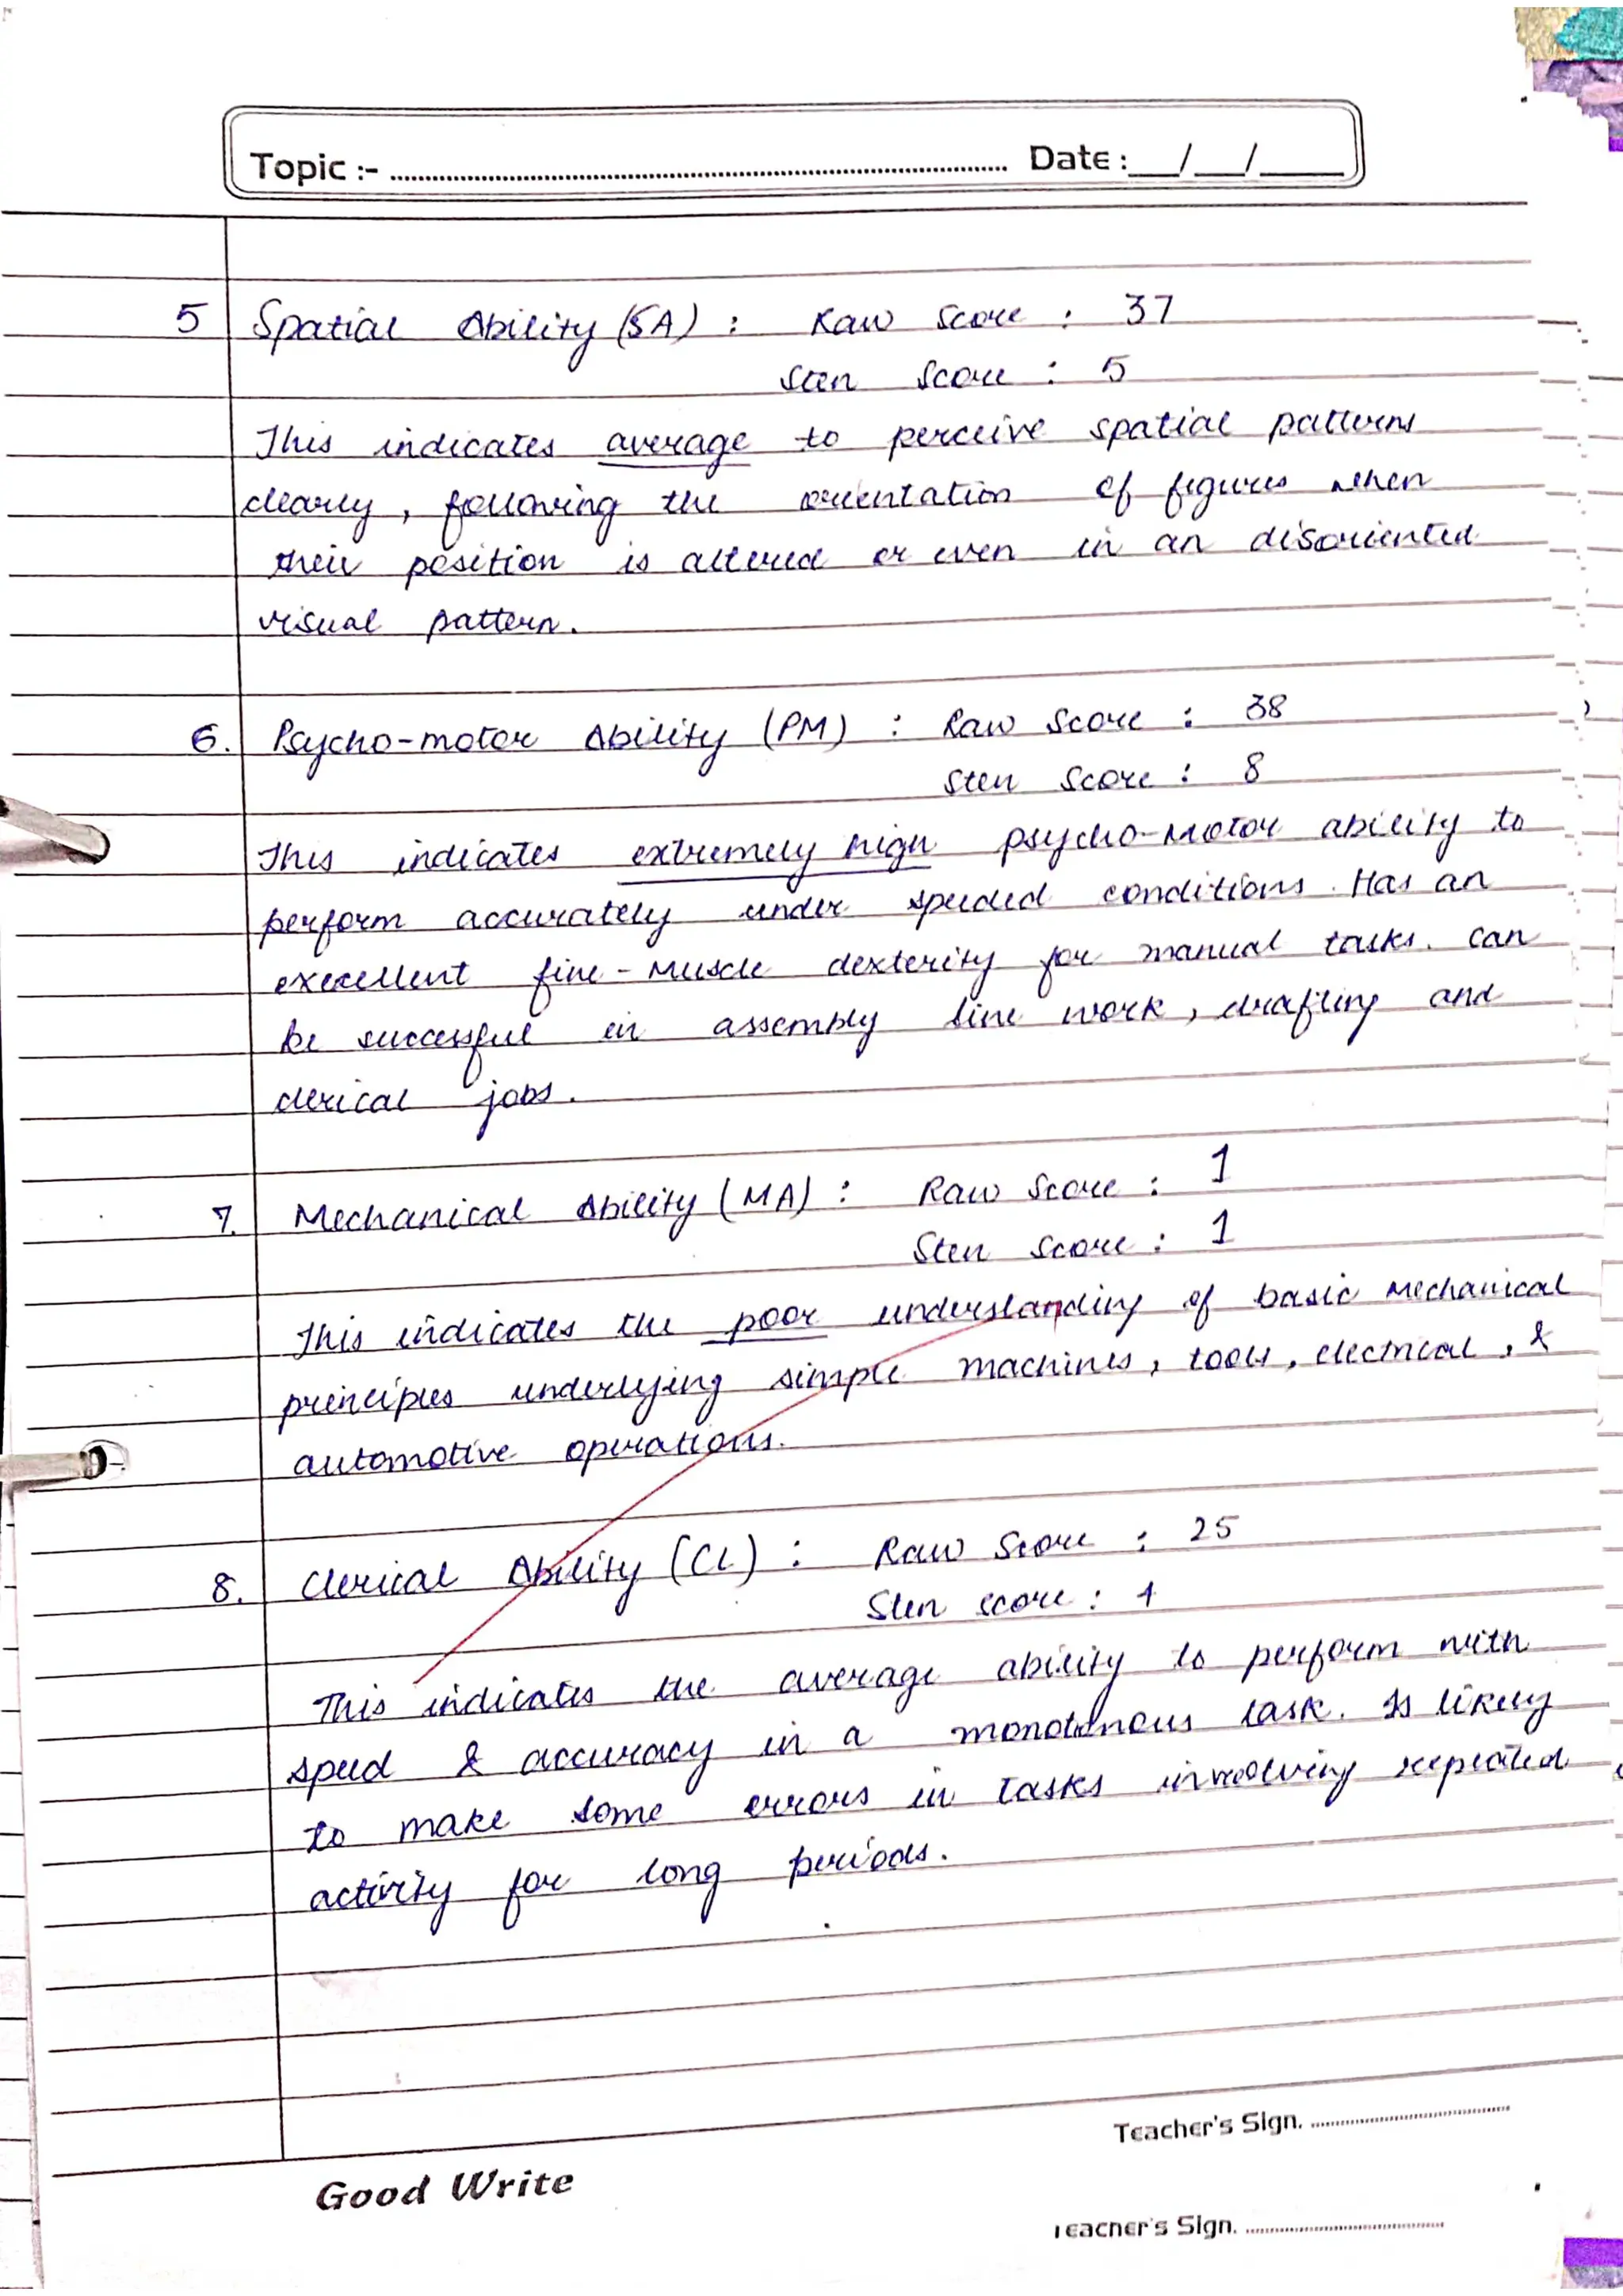 Topic :- Date : __/__/____
5 Spatial Ability (SA) : Raw Score : 37
Sten Score : 5
This indicates average to perceive spatial patterns
clearly, following the orientation of figures when
their position is altered or even in an disoriented
visual pattern.
6. Psycho-motor Ability (PM) : Raw Score : 38
Sten Score : 8
This indicates extremely high psycho-motor ability to
perform accurately under speeded conditions. Has an
execellent fine-muscle dexterity for manual tasks. can
be successful in assembly line work, drafting and
clerical jobs.
7. Mechanical Ability (MA) : Raw Score : 1
Sten Score : 1
This indicates the poor understanding of basic mechanical
principles underlying simple machines, tools, electrical, &
automotive operations.
8. Clerical Ability (CL) : Raw Score : 25
Sten score :
This indicates the average ability to perform with
speed & accuracy in a task. Is likely
to make some errors in tasks involving repeated
activity for long periods.
Teacher's Sign.
Good Write
Teacher's Sign.